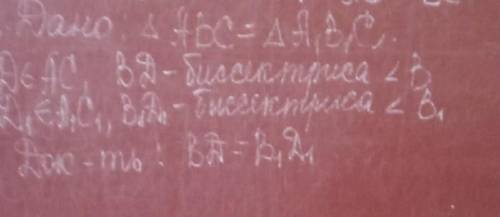 Дано: △ABC = △A₁B₁C₁.
D∈AC, BD - биссектриса ∠B,
D₁∈A₁C₁, B₁D₁ - биссектриса ∠B₁
Док-ть: BD = B₁D₁